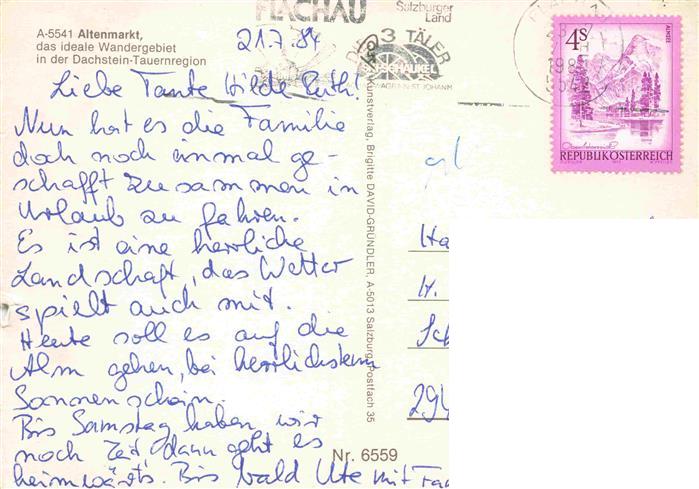 FLACHAU
Salzburger
Land
A-5541 Altenmarkt,
das ideale Wandergebiet
in der Dachstein-Tauernregion
21.7.84
3 TÄLER
4s
ALMSEE
REPUBLIK ÖSTERREICH
Liebe Tante Hilde Ruth!
Nun hat es die Familie
doch noch einmal ge-
schafft zusammen in
Urlaub zu fahren.
Es ist eine herrliche
Landschaft, das Wetter
spielt auch mit.
Heute soll es auf die
Alm gehen, bei herrlichstem
Sonnenschein.
Bis Samstag haben wir
noch Zeit, dann geht es
heimwärts. Bis bald Ute mit Fam
Kunstverlag, Brigitte DAVID-GRÜNDLER, A-5013 Salzburg, Postfach 35
Nr. 6559
Ha
H.
Sch
294